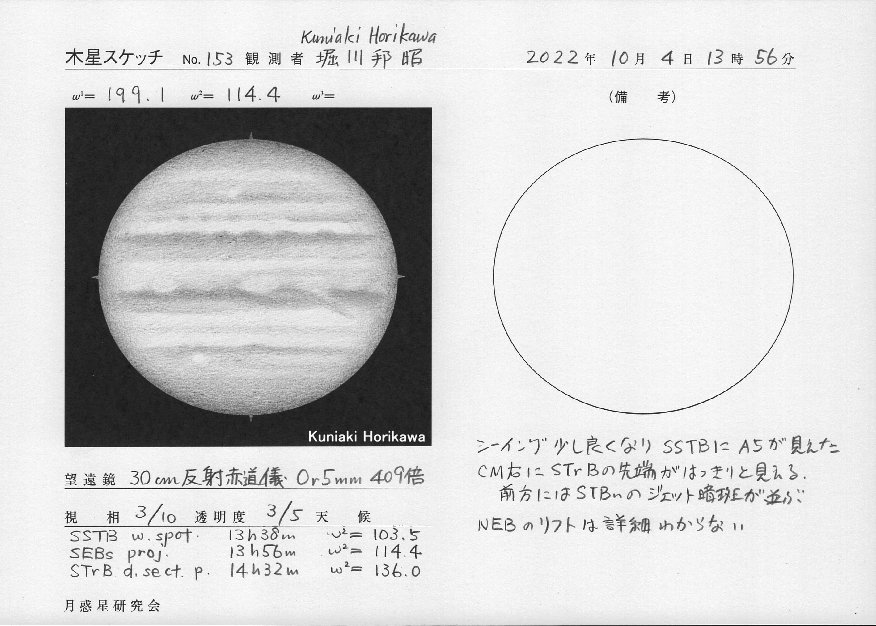 Kuniaki Horikawa
木星スケッチ No. 153 観測者 堀川邦昭
2022年 10月 4日 13時 56分
ω¹= 199.1 ω²= 114.4 ω³=
(備 考)
Kuniaki Horikawa
シーイング少し良くなり SSTBに A5が見えた
CM右に STrBの先端がはっきりと見える.
前方にはSTBnのジェット暗斑が並ぶ
NEBのリフトは詳細わからない
望遠鏡 30cm反射赤道儀 Or5mm 409倍
視 相 3/10 透明度 3/5 天 候
SSTB w.spot. 13h38m ω²= 103.5
SEBs proj. 13h56m ω²= 114.4
STrB d.sect.p. 14h32m ω²= 136.0
月惑星研究会